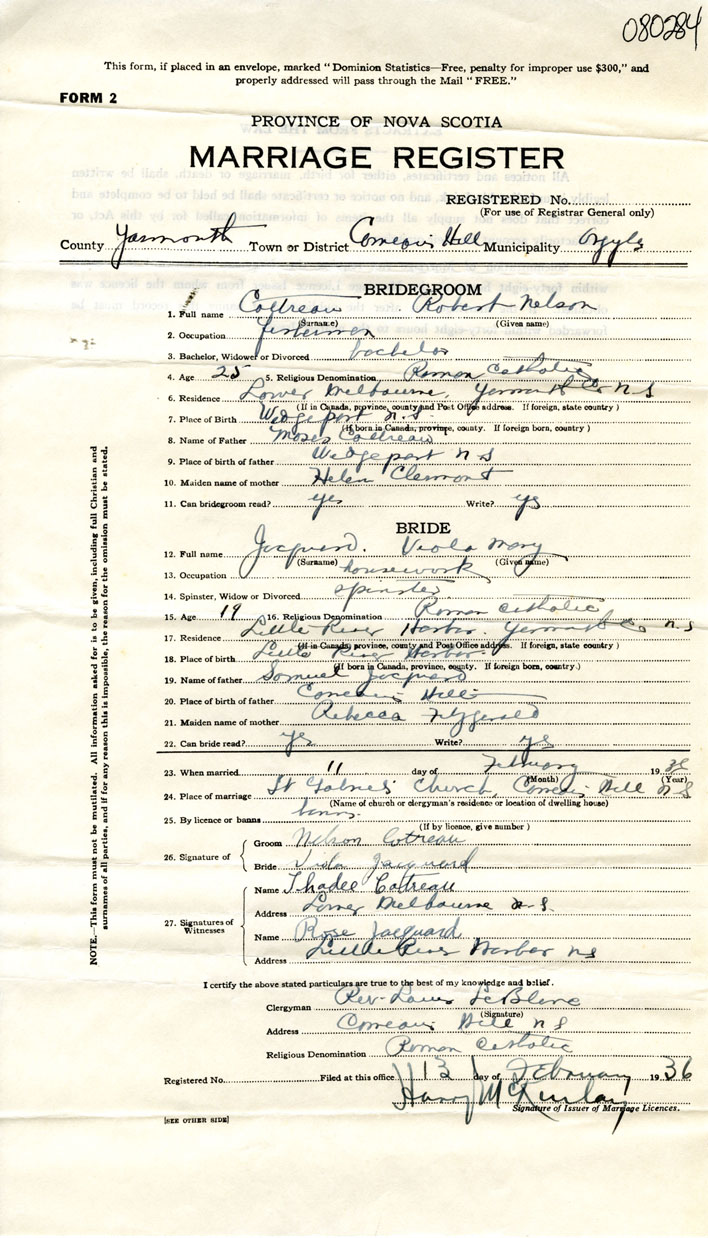 080284
This form, if placed in an envelope, marked "Dominion Statistics—Free, penalty for improper use $300," and
properly addressed will pass through the Mail "FREE."
FORM 2
PROVINCE OF NOVA SCOTIA
MARRIAGE REGISTER
REGISTERED No.
(For use of Registrar General only)
County Yarmouth Town or District Comeau's Hill Municipality Argyle
BRIDEGROOM
1. Full name Cottreau Robert Nelson
(Surname) (Given name)
2. Occupation fisherman
3. Bachelor, Widower or Divorced bachelor
4. Age 25 5. Religious Denomination Roman Catholic
6. Residence Lower Melbourne, Yarmouth Co N.S
(If in Canada, province, county and Post Office address. If foreign, state country)
7. Place of Birth Wedgeport N.S
(If born in Canada, province, county. If foreign born, country.)
8. Name of Father Moses Cottreau
9. Place of birth of father Wedgeport N S
10. Maiden name of mother Helen Clermont
11. Can bridegroom read? yes Write? yes
BRIDE
12. Full name Jacquard. Viola Mary
(Surname) (Given name)
13. Occupation housework
14. Spinster, Widow or Divorced spinster
15. Age 19 16. Religious Denomination Roman Catholic
17. Residence Little River Harbor. Yarmouth Co N.S
(If in Canada, province, county and Post Office address. If foreign, state country)
18. Place of birth Little River Harbor
(If born in Canada, province, county. If foreign born, country.)
19. Name of father Samuel Jacquard
20. Place of birth of father Comeau's Hill
21. Maiden name of mother Rebecca Fitzgerald
22. Can bride read? yes Write? yes
23. When married 11 day of February 1936
(Month) (Year)
24. Place of marriage St Church, Comeau's Hill N S
(Name of church or clergyman's residence or location of dwelling house)
25. By licence or banns banns
(If by licence, give number)
26. Signature of
Groom Nelson Cotreau
Bride Viola Jacquard
27. Signatures of Witnesses
Name Thadee Cottreau
Address Lower Melbourne N.S.
Name Rose Jacquard
Address Little River Harbor N S
I certify the above stated particulars are true to the best of my knowledge and belief.
Clergyman Rev. Louis LeBlanc
(Signature)
Address Comeau's Hill N S
Religious Denomination Roman Catholic
Registered No. Filed at this office 13 day of February 1936
Harry McKinlay
Signature of Issuer of Marriage Licences.
[SEE OTHER SIDE]
NOTE.—This form must not be mutilated. All information asked for is to be given, including full Christian and
surnames of all parties, and if for any reason this is impossible, the reason for the omission must be stated.